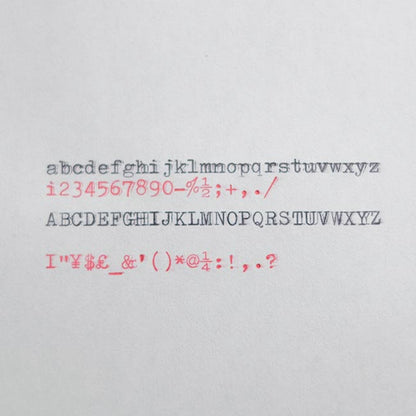 abcdefghijklmnopqrstuvwxyz
i234567890-%½;+,./
ABCDEFGHIJKLMNOPQRSTUVWXYZ
I"¥$£_&'()*@¼:!,.?